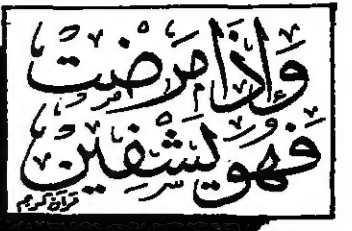 وَإِذَا مَرِضْتُ
فَهُوَ يَشْفِينِ
قرآن كريم